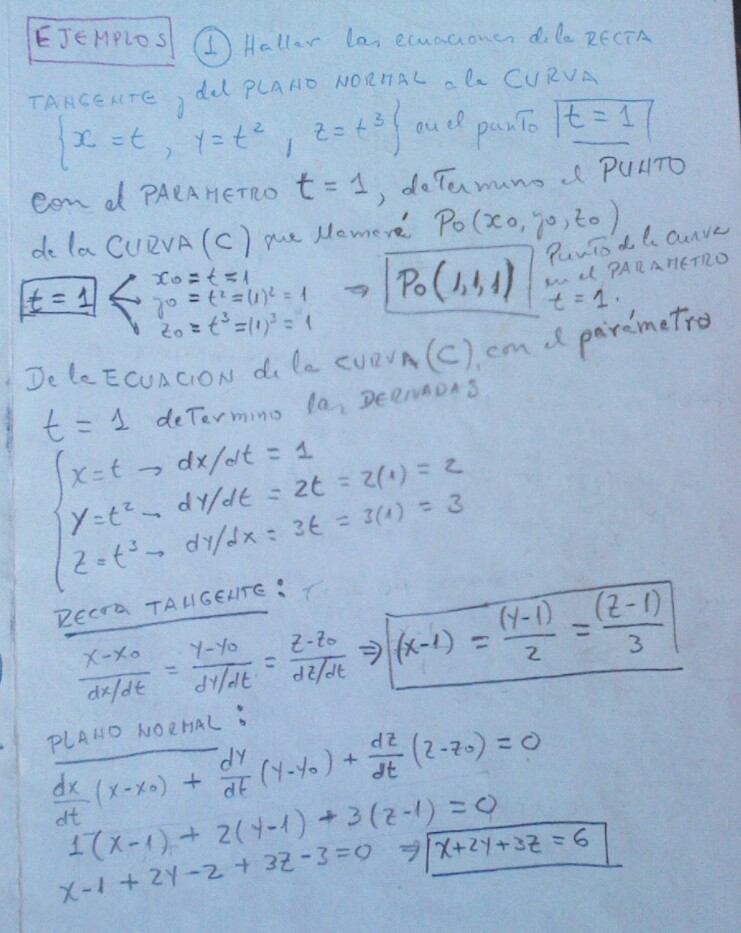 EJEMPLOS ① Hallar las ecuaciones de la RECTA
TANGENTE y del PLANO NORMAL a la CURVA
{x = t, y = t², z = t³} en el punto t = 1
con el PARAMETRO t = 1, determino el PUNTO
de la CURVA (C) que llamaré Po(xo, yo, zo)
t = 1 < xo = t = 1
yo = t² = (1)² = 1
zo = t³ = (1)³ = 1
⇒ Po(1,1,1)
Punto de la curva
en el PARAMETRO
t = 1.
De la ECUACION de la CURVA (C), con el parámetro
t = 1 determino las DERIVADAS
x = t → dx/dt = 1
y = t² → dy/dt = 2t = 2(1) = 2
z = t³ → dy/dx = 3t = 3(1) = 3
RECTA TANGENTE:
(x-xo)/(dx/dt) = (y-yo)/(dy/dt) = (z-zo)/(dz/dt) ⇒ (x-1) = (y-1)/2 = (z-1)/3
PLANO NORMAL:
dx/dt (x-xo) + dy/dt (y-yo) + dz/dt (z-zo) = 0
1(x-1) + 2(y-1) + 3(z-1) = 0
x-1 + 2y-2 + 3z-3 = 0 ⇒ x+2y+3z = 6